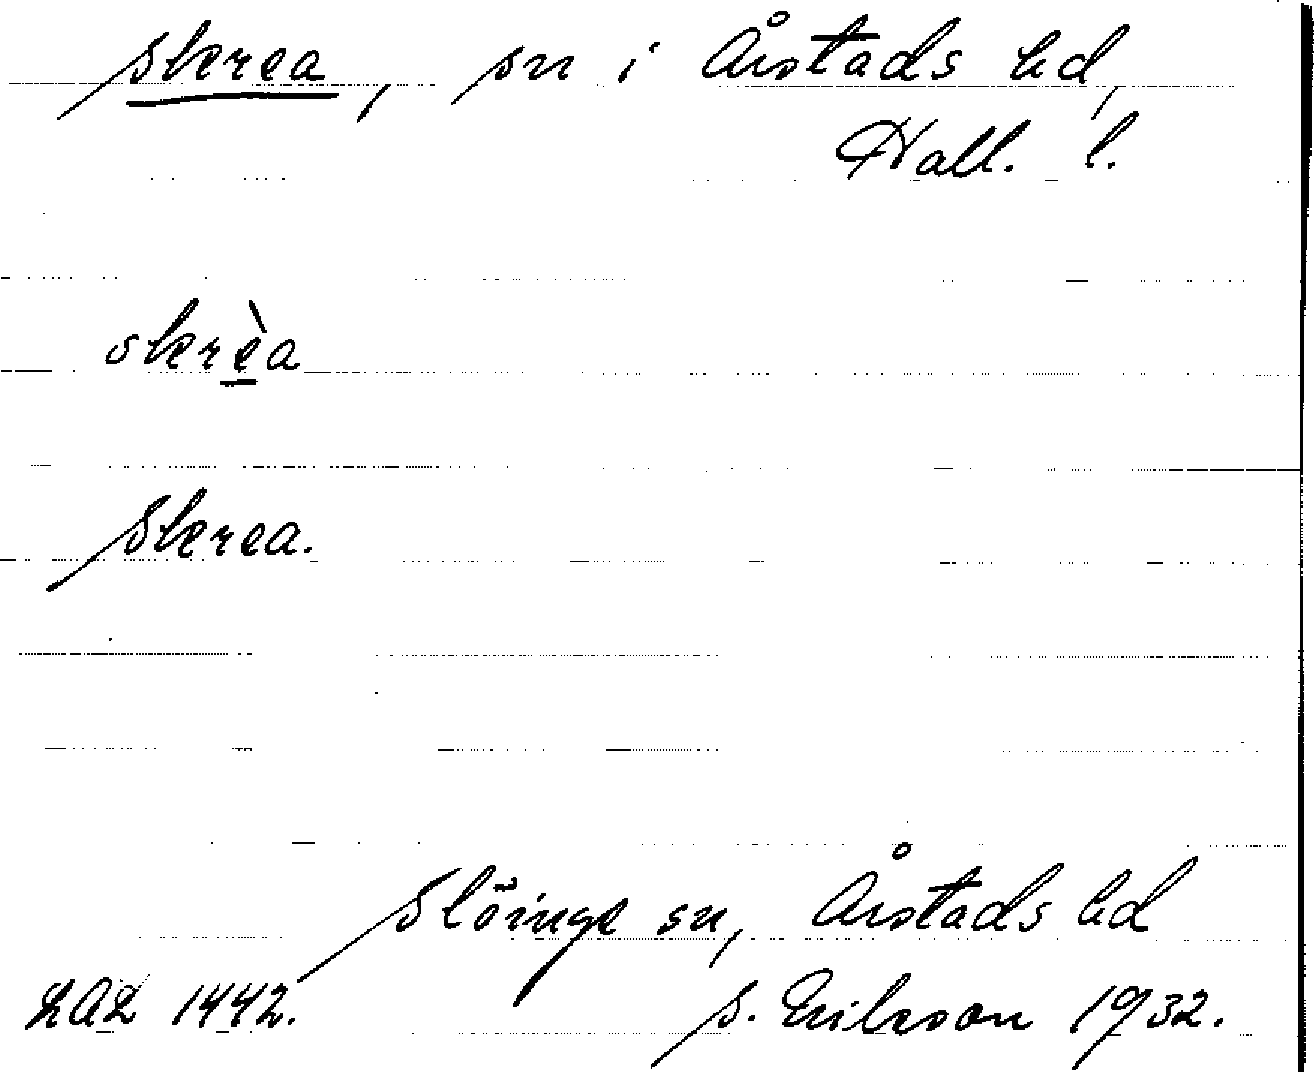 Skrea, sn i Årstads hd,
Hall. l.
skrèa
Skrea.
Slöinge sn, Årstads hd
LAL 1442. S. Erikson 1932.